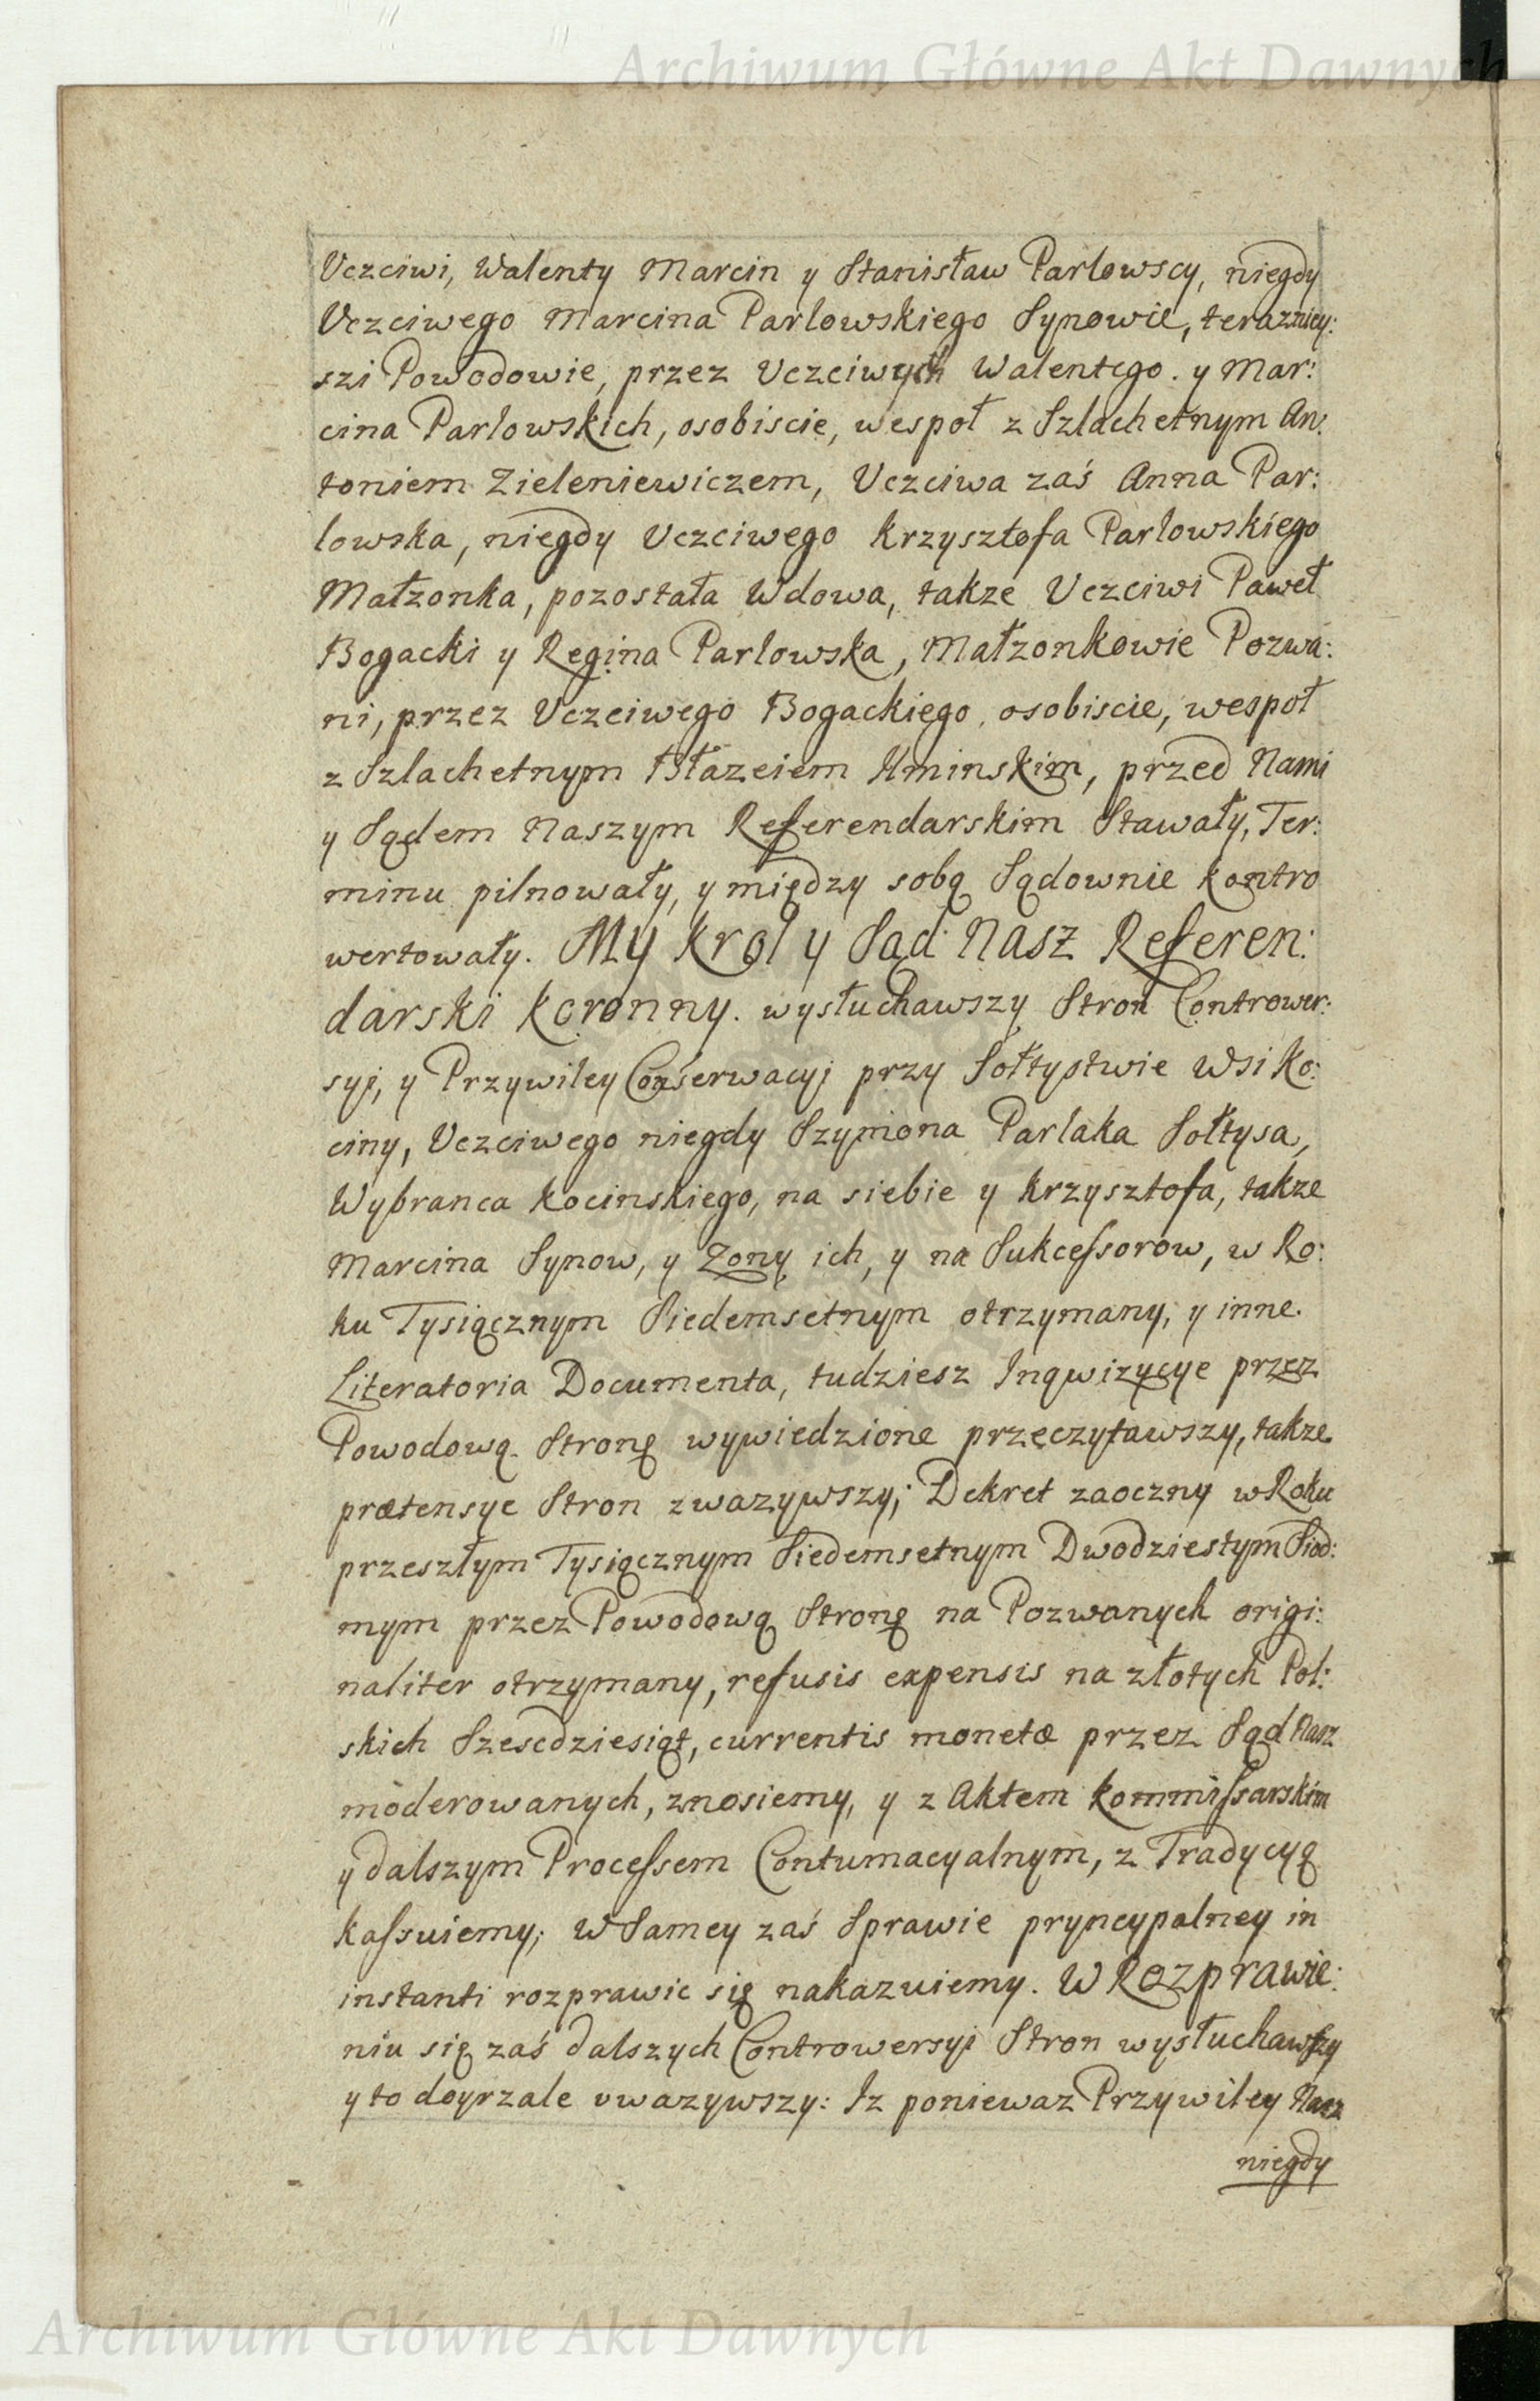 Archiwum Główne Akt Dawnych
Uczciwi, Walenty Marcin y Stanisław Parlowscy, niegdy
Uczciwego Marcina Parlowskiego Synowie, terazniey:
szi Powodowie, przez Uczciwych Walentego. y Mar:
cina Parlowskich, osobiscie, wespoł z Szlachetnym An:
toniem Zieleniewiczem, Uczciwa zaś Anna Par:
lowska, niegdy Uczciwego Krzysztofa Parlowskiego
Małzonka, pozostała Wdowa, takze Uczciwi Paweł
Bogacki y Regina Parlowska, Małzonkowie Pozwa:
ni, przez Uczciwego Bogackiego, osobiscie, wespoł
z Szlachetnym Błazeiem Kminskim, przed Nami
y Sądem Naszym Referendarskim Stawały, Ter:
minu pilnowały, y między sobą Sądownie kontro
wertowały. My Krol y Sąd Nasz Referen:
darski Koronny. wysłuchawszy Stron Contrower:
syi, y Przywiley Conserwacyi przy Sołtystwie Wsi Ko:
ciny, Uczciwego niegdy Szymona Parlaka Sołtysa,
Wybranca Kocinskiego, na siebie y Krzysztofa, takze
Marcina Synow, y Zony ich, y na Sukcessorow, w Ro:
ku Tysiącznym Siedemsetnym otrzymany, y inne.
Literatoria Documenta, tudziesz Inqwizycye przez
Powodową Stronę wywiedzione przeczytawszy, takze
prætensye Stron zwazywszy; Dekret zaoczny w Roku
przeszłym Tysiącznym Siedemsetnym Dwodziestym Siod:
mym przez Powodową Stronę na Pozwanych origi:
naliter otrzymany, refusis expensis na złotych Pol:
skich Szescdziesiąt, currentis monetæ przez Sąd Nasz
moderowanych, znosiemy, y z Aktem Kommissarskim
y dalszym Processem Contumacyalnym, z Tradycyą
kassuiemy; W Samey zaś Sprawie pryncypalney in
instanti rozprawic się nakazuiemy. W Rozprawie:
niu się zaś dalszych Controwersyi Stron wysłuchawszy
y to doyrzale uwazywszy: Iz poniewaz Przywiley Nasz
niegdy
Archiwum Główne Akt Dawnych